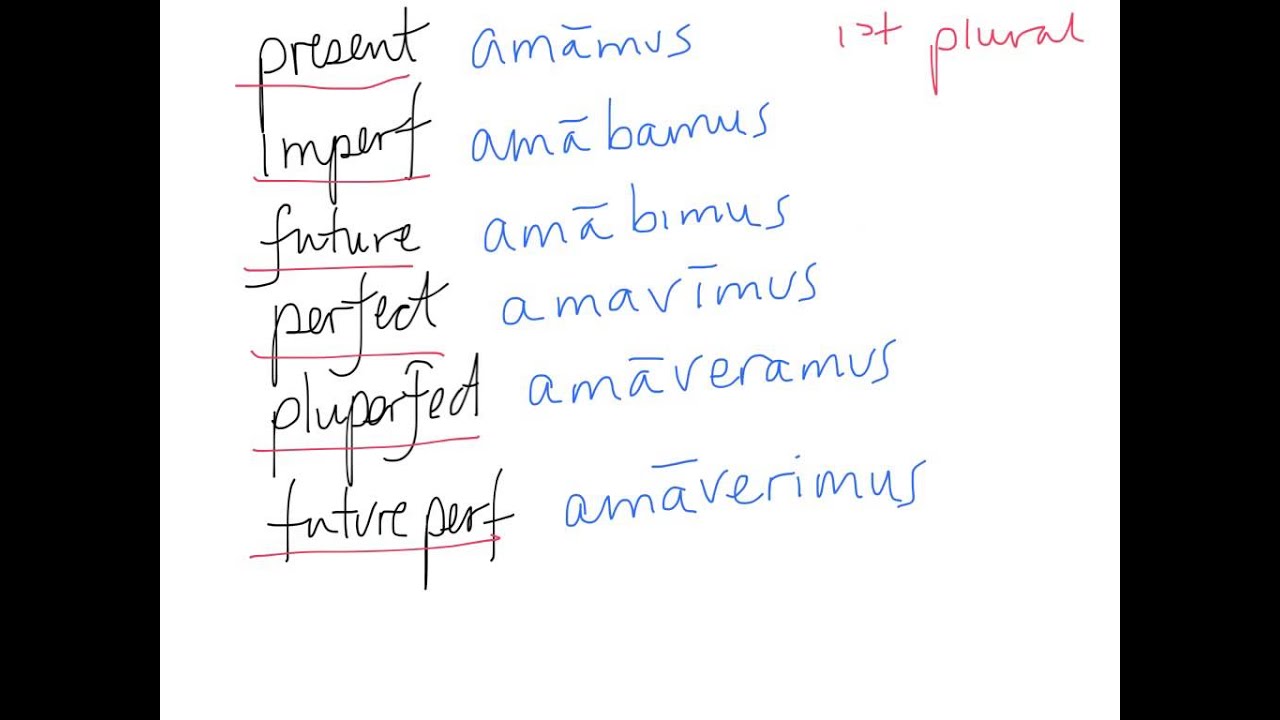 present amāmus 1st plural
Imperf amābamus
future amābimus
perfect amavīmus
pluperfect amāveramus
future perf amāverimus